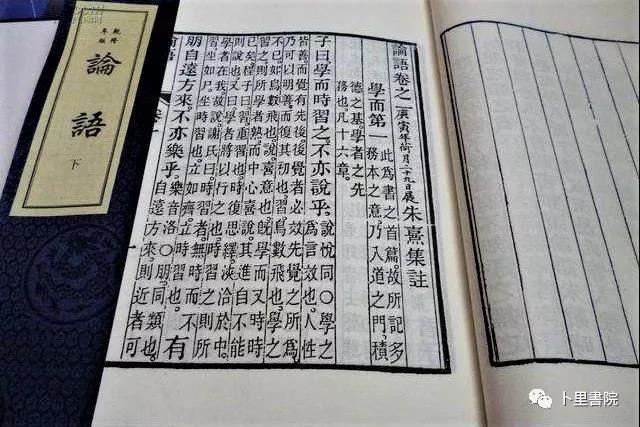 論語
下
論語卷之一 庚寅年荷月二十九日展 朱熹集註
學而第一
此為書之首篇故所記多
務本之意乃入道之門積
德之基學者之先
務也凡十六章。
子曰學而時習之。不亦說乎。
說悅同○學之
為言效也。人性
皆善而覺有先後後覺者必效先覺之所為
乃可以明善而復其初也。習鳥數飛也。學之
不已如鳥數飛也。說喜意也。既學而又時時
習之則所學者熟而中心喜說其進自不能
已矣。程子曰習重習也。時復思繹浹洽於中。
則說也。又曰學者將以行之也。時習之則所
學者在我故說。謝氏曰時習者。無時而不
習。坐如尸。坐時習也。立如齊。立時習也。
有
朋自遠方來。不亦樂乎。
樂音洛○朋同類也。
自遠方來。則近者可
卜里書院